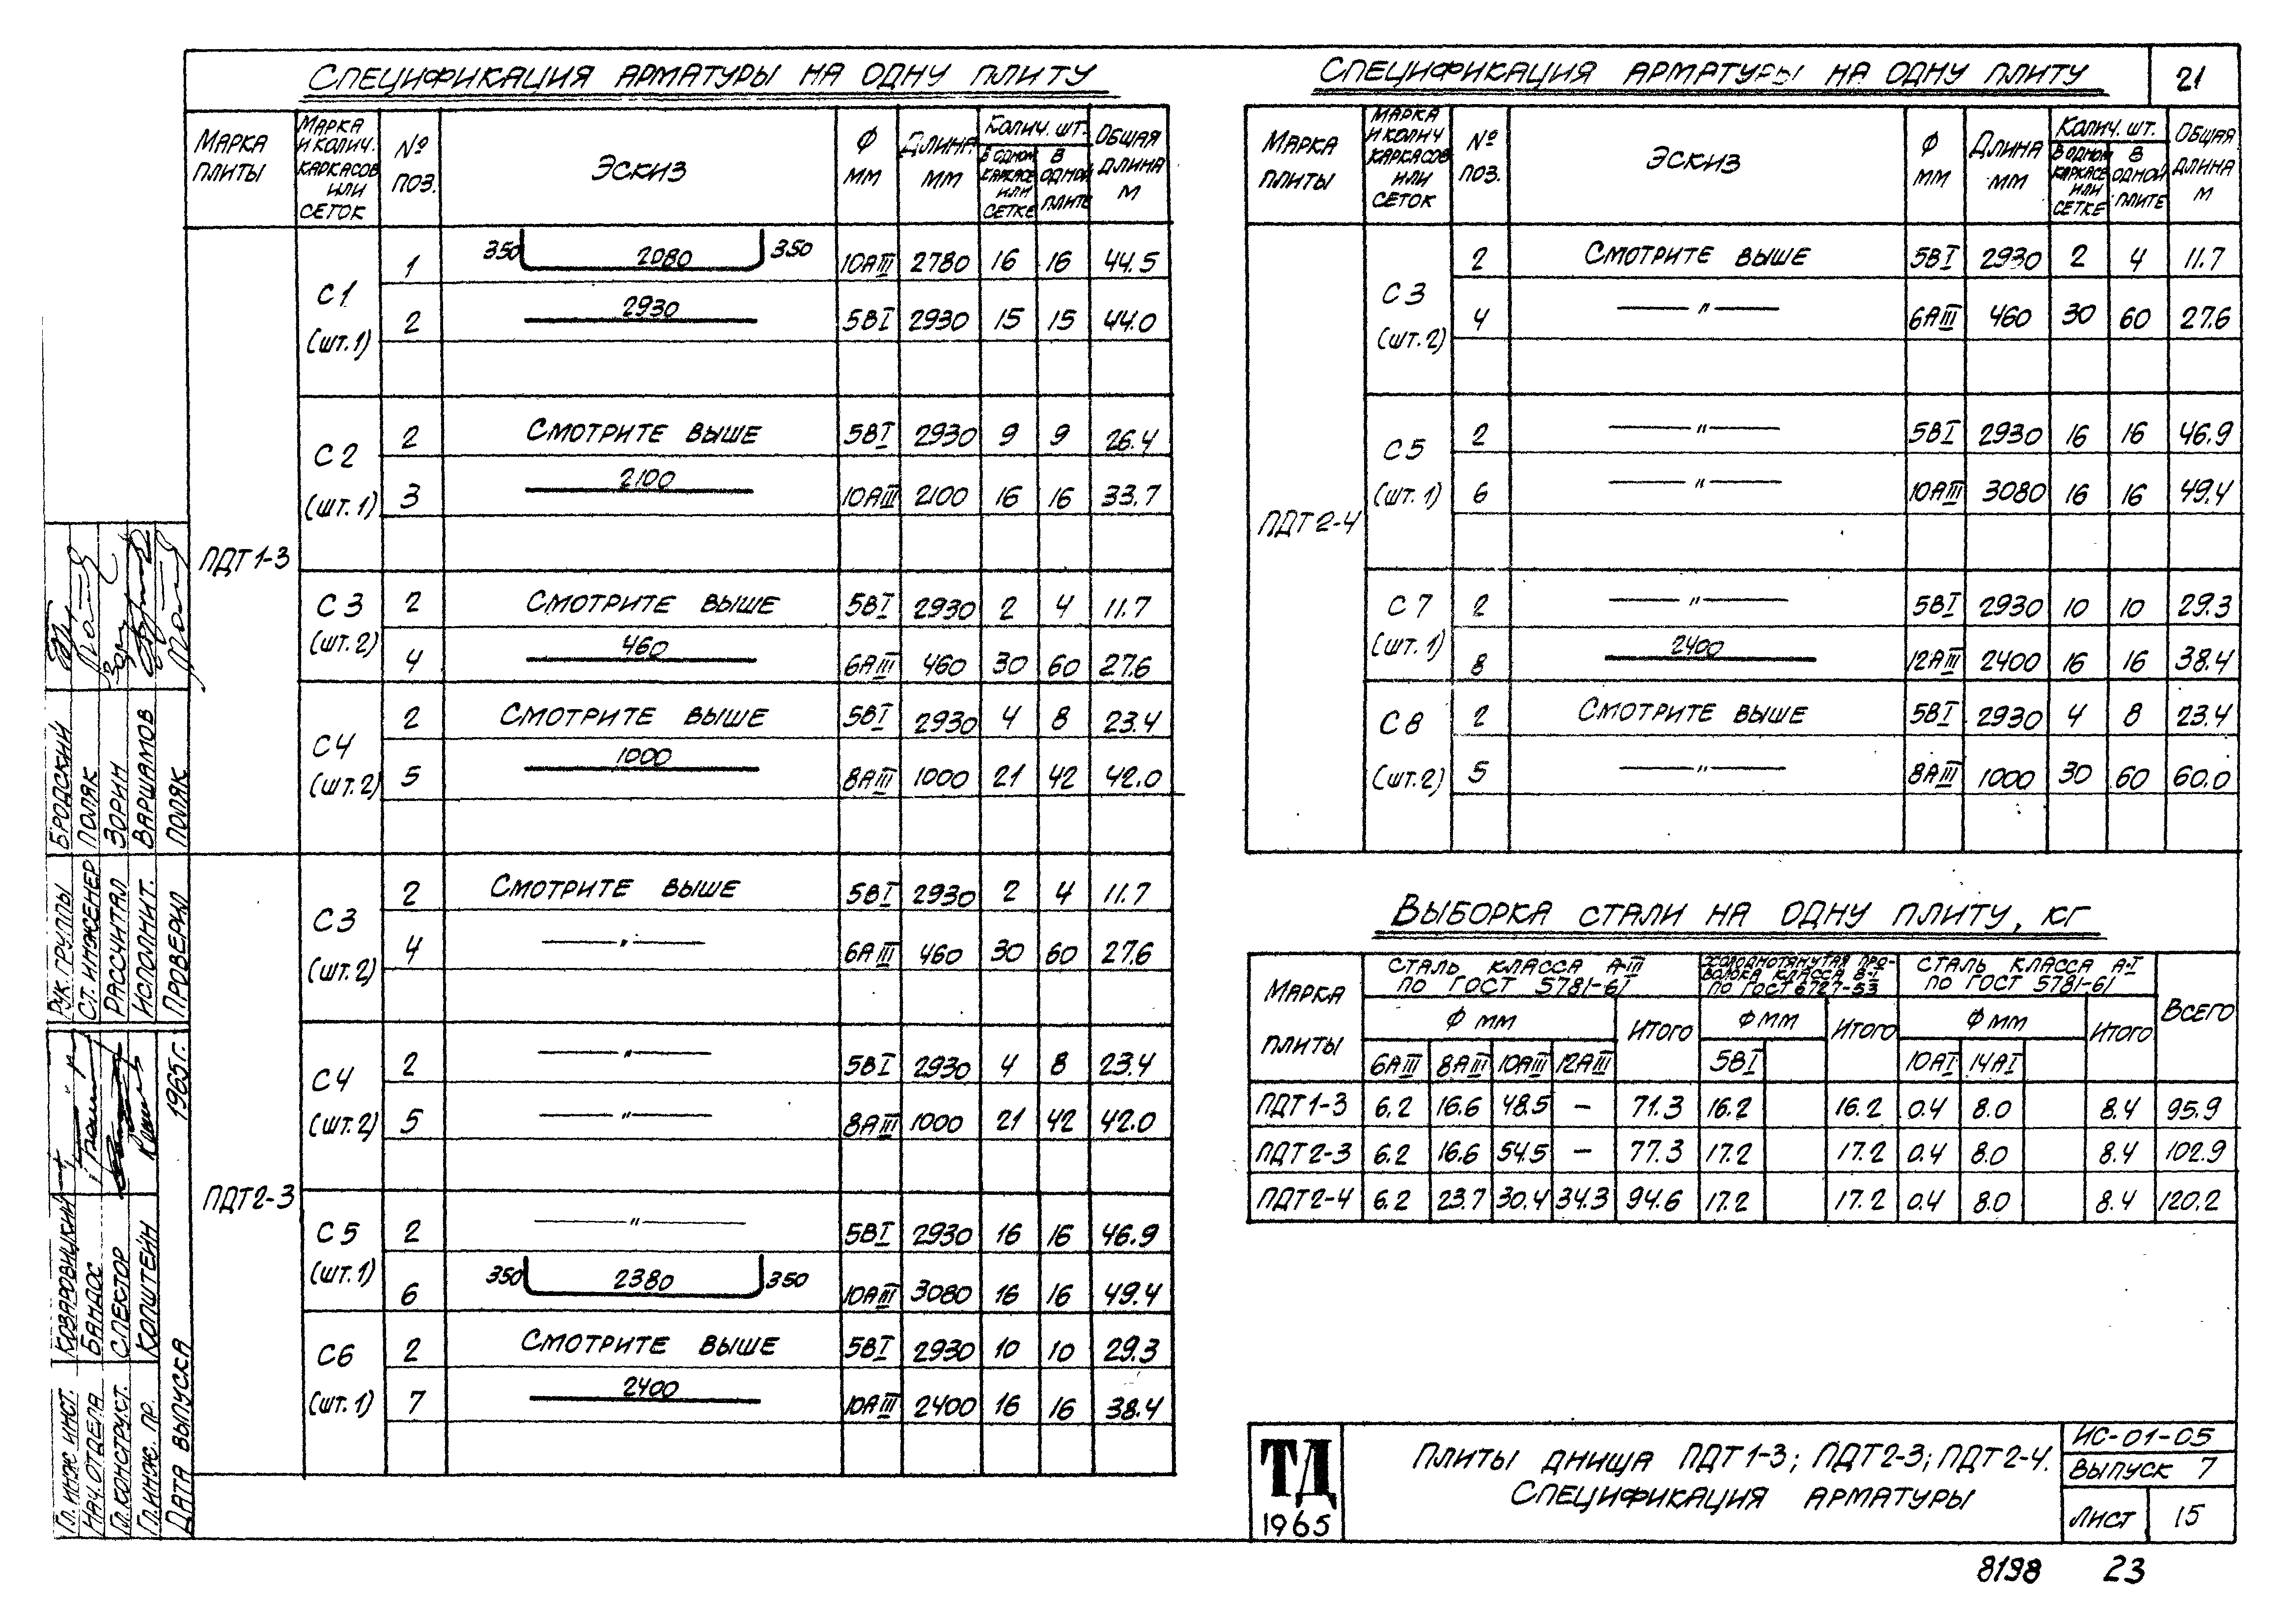 Спецификация арматуры на одну плиту
Марка плиты | Марка и колич. каркасов или сеток | №№ поз. | Эскиз | Ф мм | Длина мм | Колич. шт. в одном каркасе или сетке | Колич. шт. в одной плите | Общая длина м
ПДТ1-3
С1 (шт.1) | 1 | 350 2080 350 | 10АIII | 2780 | 16 | 16 | 44.5
2 | 2930 | 5ВI | 2930 | 15 | 15 | 44.0
С2 (шт.1) | 2 | Смотрите выше | 5ВI | 2930 | 9 | 9 | 26.4
3 | 2100 | 10АIII | 2100 | 16 | 16 | 33.7
С3 (шт.2) | 2 | Смотрите выше | 5ВI | 2930 | 2 | 4 | 11.7
4 | 460 | 6АIII | 460 | 30 | 60 | 27.6
С4 (шт.2) | 2 | Смотрите выше | 5ВI | 2930 | 4 | 8 | 23.4
5 | 1000 | 8АIII | 1000 | 21 | 42 | 42.0
ПДТ2-3
С3 (шт.2) | 2 | Смотрите выше | 5ВI | 2930 | 2 | 4 | 11.7
4 | —„— | 6АIII | 460 | 30 | 60 | 27.6
С4 (шт.2) | 2 | —„— | 5ВI | 2930 | 4 | 8 | 23.4
5 | —„— | 8АIII | 1000 | 21 | 42 | 42.0
С5 (шт.1) | 2 | —„— | 5ВI | 2930 | 16 | 16 | 46.9
6 | 350 2380 350 | 10АIII | 3080 | 16 | 16 | 49.4
С6 (шт.1) | 2 | Смотрите выше | 5ВI | 2930 | 10 | 10 | 29.3
7 | 2400 | 10АIII | 2400 | 16 | 16 | 38.4
Спецификация арматуры на одну плиту
21
Марка плиты | Марка и колич каркасов или сеток | №№ поз. | Эскиз | Ф мм | Длина мм | Колич. шт. в одном каркасе или сетке | Колич. шт. в одной плите | Общая длина м
ПДТ2-4
С3 (шт.2) | 2 | Смотрите выше | 5ВI | 2930 | 2 | 4 | 11.7
4 | —„— | 6АIII | 460 | 30 | 60 | 27.6
С5 (шт.1) | 2 | —„— | 5ВI | 2930 | 16 | 16 | 46.9
6 | —„— | 10АIII | 3080 | 16 | 16 | 49.4
С7 (шт.1) | 2 | —„— | 5ВI | 2930 | 10 | 10 | 29.3
8 | 2400 | 12АIII | 2400 | 16 | 16 | 38.4
С8 (шт.2) | 2 | Смотрите выше | 5ВI | 2930 | 4 | 8 | 23.4
5 | —„— | 8АIII | 1000 | 30 | 60 | 60.0
Выборка стали на одну плиту, кг
Марка плиты | Сталь класса А-III по ГОСТ 5781-61 | Холоднотянутая проволока класса В-I по ГОСТ 6727-53 | Сталь класса А-I по ГОСТ 5781-61 | Всего
Ф мм | Итого | Ф мм | Итого | Ф мм | Итого
6АIII | 8АIII | 10АIII | 12АIII | 5ВI | 10АI | 14АI
ПДТ1-3 | 6.2 | 16.6 | 48.5 | – | 71.3 | 16.2 | 16.2 | 0.4 | 8.0 | 8.4 | 95.9
ПДТ2-3 | 6.2 | 16.6 | 54.5 | – | 77.3 | 17.2 | 17.2 | 0.4 | 8.0 | 8.4 | 102.9
ПДТ2-4 | 6.2 | 23.7 | 30.4 | 34.3 | 94.6 | 17.2 | 17.2 | 0.4 | 8.0 | 8.4 | 120.2
ТД
1965
Плиты днища ПДТ1-3; ПДТ2-3; ПДТ2-4.
Спецификация арматуры
ИС-01-05
Выпуск 7
Лист 15
8198 23
Рук. группы Бродский
Ст. инженер Поляк
Рассчитал Зорин
Исполнит. Варшамов
Проверил Поляк
Гл. инж инст. Козаровицкий
Нач. отдела Бандос
Гл. конструкт. Спектор
Гл. инж. пр. Копштейн
Дата выпуска 1965г.